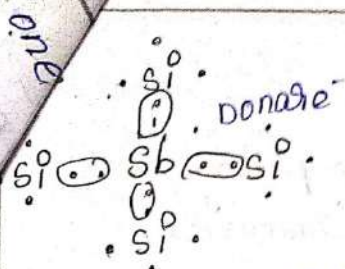 one
Si
Donate
Si Sb Si
Si